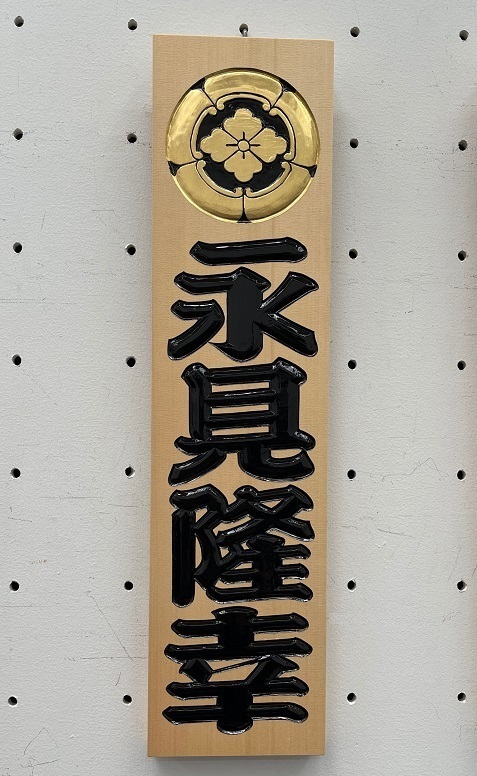 永見隆幸